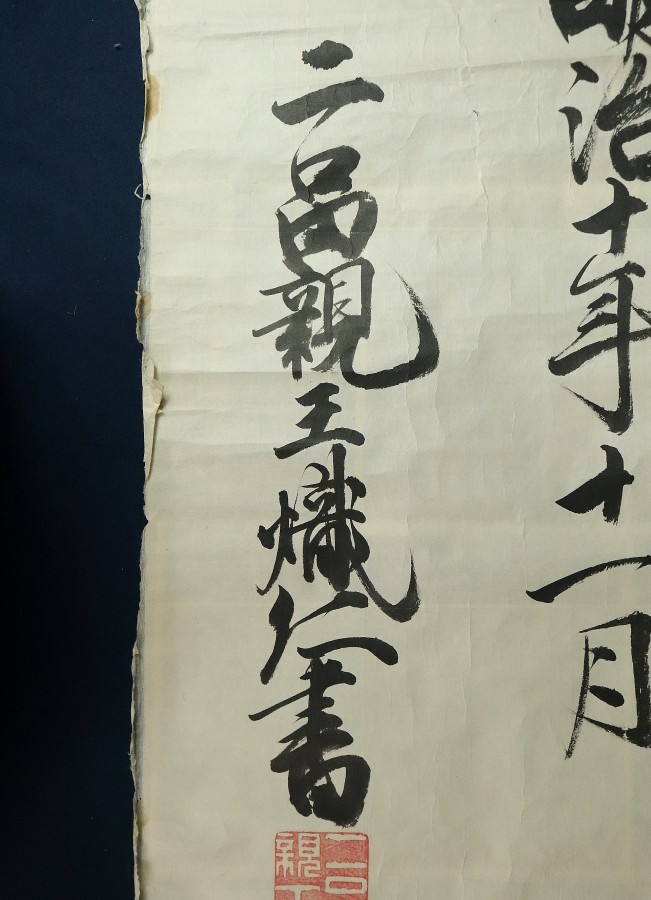 明治十年十一月
二品親王熾仁書
二品
親王